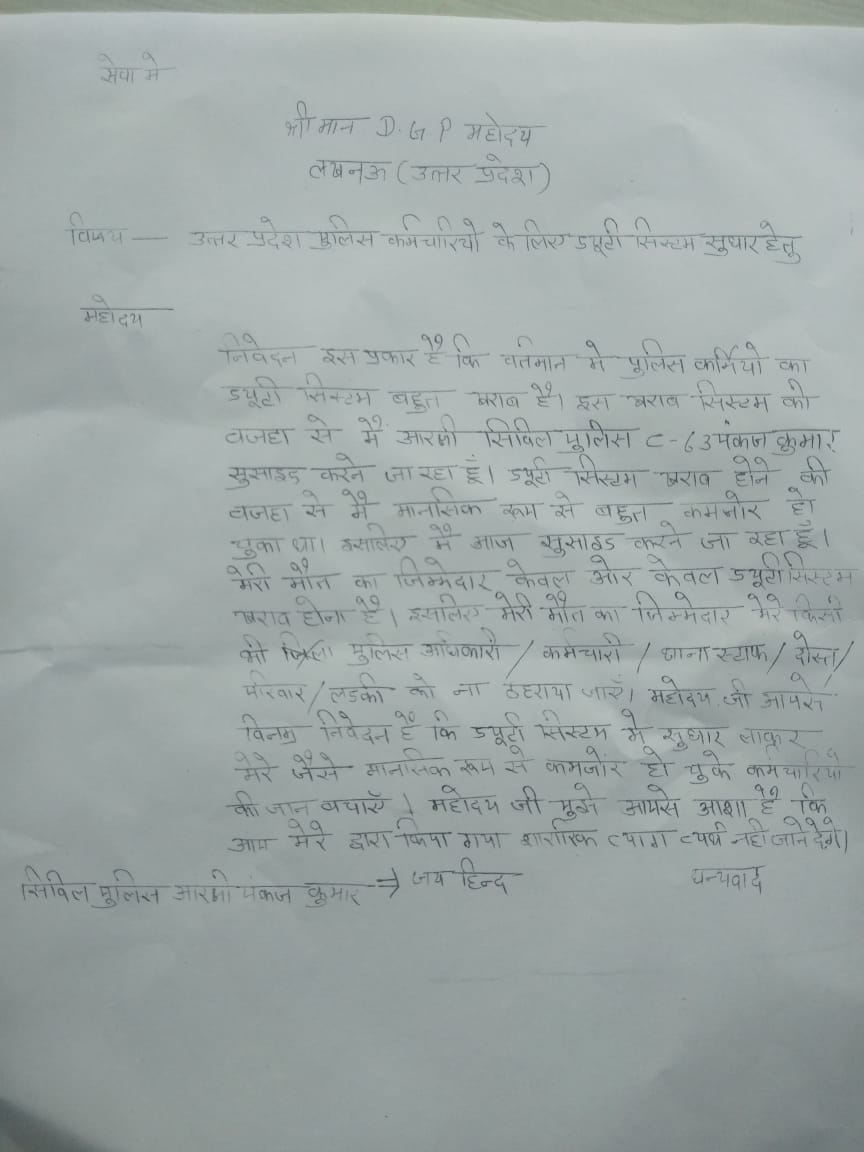 सेवा मे
श्री मान D.G.P महोदय
लखनऊ (उत्तर प्रदेश)
विषय — उत्तर प्रदेश पुलिस कर्मचारियो के लिए ड्यूटी सिस्टम सुधार हेतु
महोदय
निवेदन इस प्रकार है कि वर्तमान मे पुलिस कर्मियो का
ड्यूटी सिस्टम बहुत खराब है। इस खराब सिस्टम की
वजहा से मैं आरक्षी सिविल पुलिस C-63 पंकज कुमार
सुसाइड करने जा रहा हूँ। ड्यूटी सिस्टम खराब होने की
वजहा से मैं मानसिक रूप से बहुत कमजोर हो
चुका था। इसलिए मैं आज सुसाइड करने जा रहा हूँ।
मेरी मौत का जिम्मेदार केवल और केवल ड्यूटी सिस्टम
खराब होना है। इसलिए मेरी मौत का जिम्मेदार मेरे किसी
भी जिला पुलिस अधिकारी / कर्मचारी / थाना स्टाफ / दोस्त /
परिवार / लडकी को ना ठहराया जाएँ। महोदय जी आपसे
विनम्र निवेदन है कि ड्यूटी सिस्टम मे सुधार लाकर
मेरे जैसे मानसिक रूप से कमजोर हो चुके कर्मचारियो
की जान बचाएँ। महोदय जी मुझे आपसे आशा है कि
आप मेरे द्वारा किया गया शारीरिक त्याग व्यर्थ नही जाने देंगे।
सिविल पुलिस आरक्षी पंकज कुमार ⇒ जय हिन्द धन्यवाद